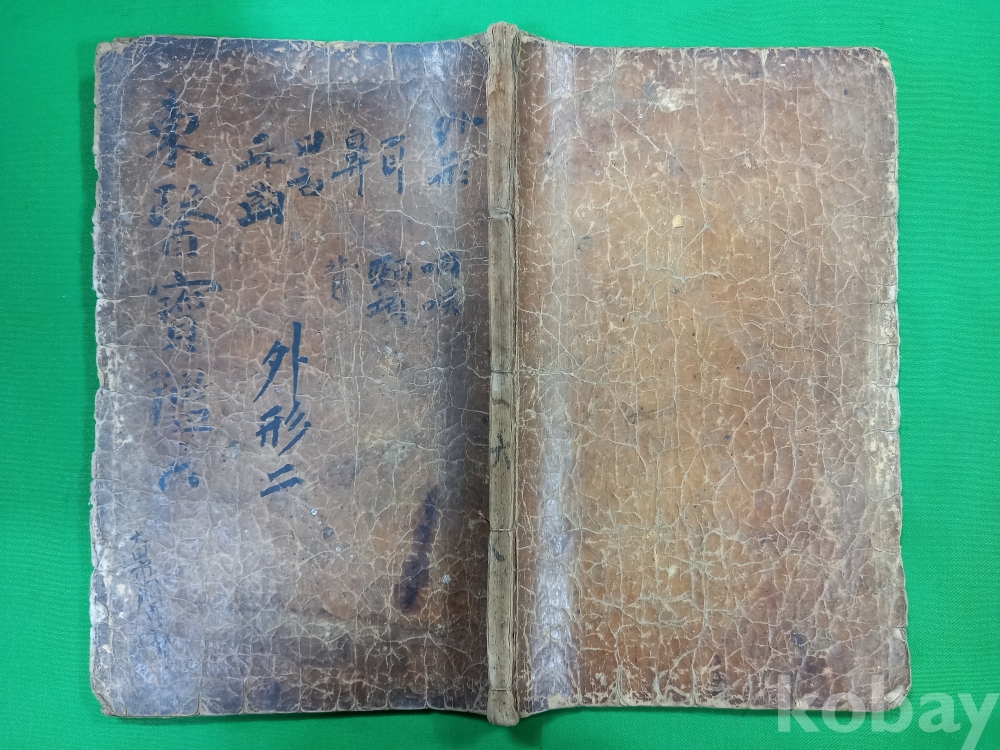 外形 咽喉
耳 頸項
鼻 背
口舌
牙齒
外形二
東醫寶鑑 六
kobay